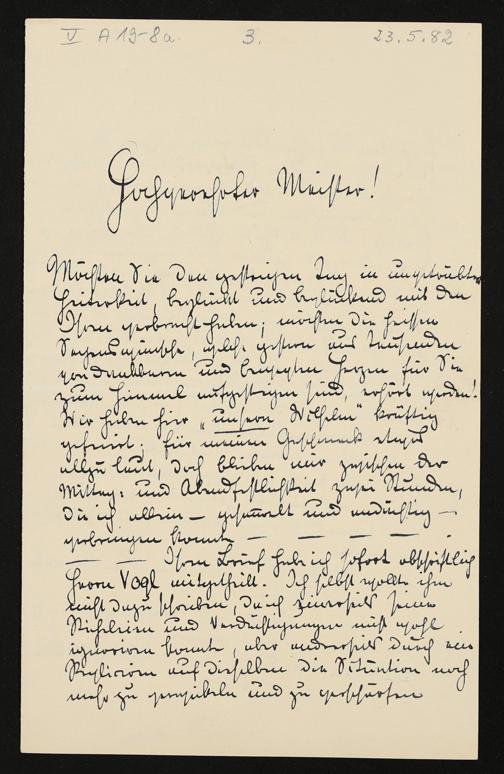 V A 19-8a. 3. 23.5.82
Hochverehrter Meister!
Möchten Sie den gestrigen Tag in ungetrübter
Heiterkeit, beglückt und beglückend mit den
Ihren verbracht haben; möchten die heissen
Segenswünsche, welche gestern aus tausenden
von dankbaren und bewegten Herzen für Sie
zum Himmel aufgestiegen sind, erhört werden!
Wir haben hier „unsern Wilhelm" kräftig
gefeiert; für meinen Geschmack etwas
allzu laut, doch blieben mir zwischen der
Mittag- und Abendfestlichkeit zwei Stunden,
die ich allein — gesammelt und andächtig —
verbringen konnte — — — — — .
— — — Ihren Brief habe ich sofort abschriftlich
Herrn Vogl mitgetheilt. Ich selbst wollte ihm
nicht dazu schreiben, da ich einerseits seine
Sticheleien und Verdächtigungen nicht wohl
ignoriren konnte, aber andererseits durch ein
Repliciren auf dieselben die Situation noch
mehr zu und zu verschärfen